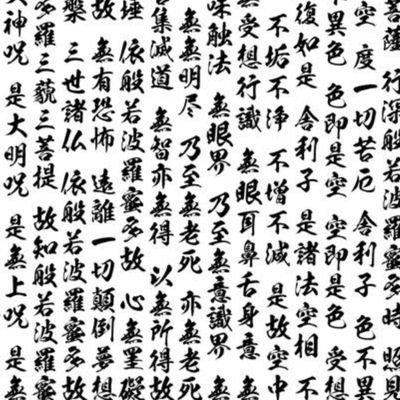 菩薩 行深般若波羅蜜多時 照見
空 度一切苦厄 舍利子 色不異
不異色 色即是空 空即是色 受想
復如是 舍利子 是諸法空相 不
不垢不淨 不増不減 是故空中
無受想行識 無眼耳鼻舌身意 無
味触法 無眼界 乃至無意識界 無
無無明尽 乃至無老死 亦無老死
集滅道 無智亦無得 以無所得故
埵 依般若波羅蜜多故 心無罣礙
故 無有恐怖 遠離一切顛倒夢想
槃 三世諸仏 依般若波羅蜜多故
多羅三藐三菩提 故知般若波羅蜜
大神呪 是大明呪 是無上呪 是無